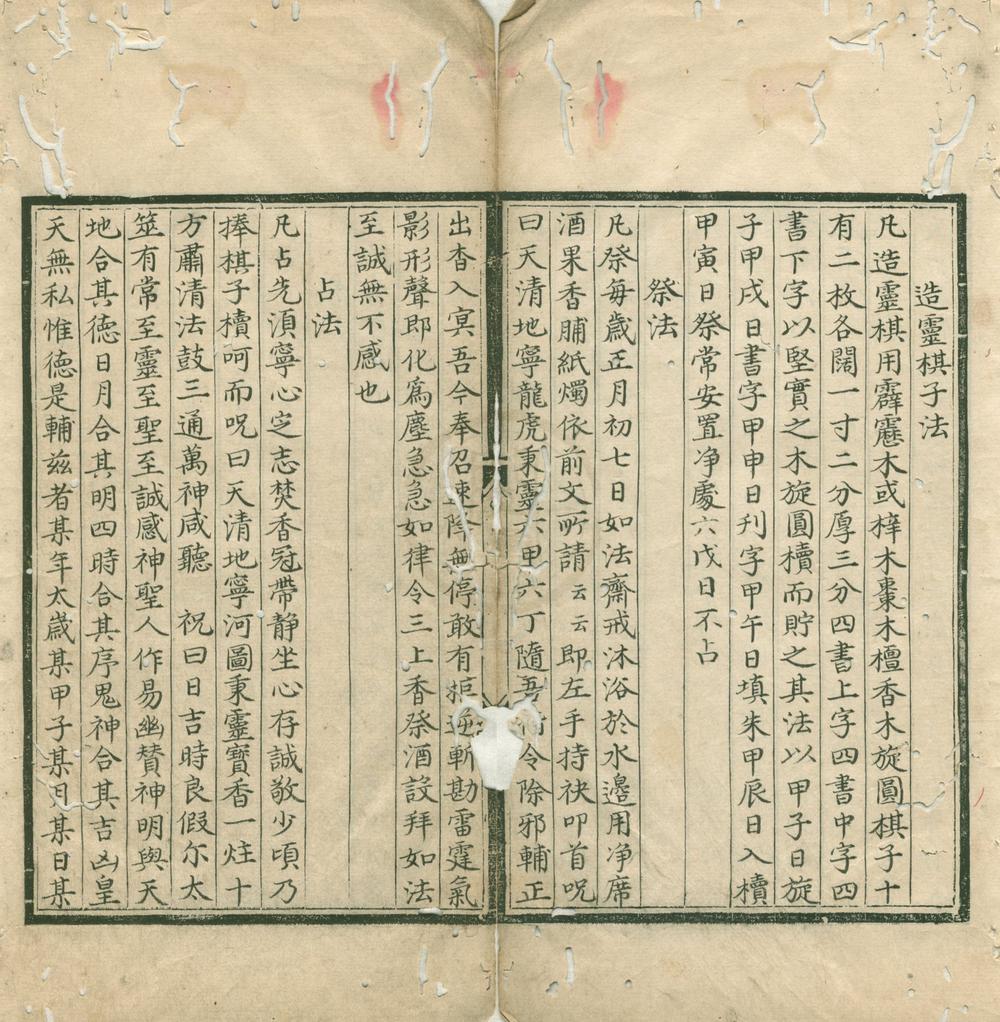 造靈棋子法
凡造靈棋用霹靂木或梓木棗木檀香木旋圓棋子十
有二枚各闊一寸二分厚三分四書上字四書中字四
書下字以堅實之木旋圓櫝而貯之其法以甲子日旋
子甲戌日書字甲申日刊字甲午日填朱甲辰日入櫝
甲寅日祭常安置净處六戊日不占
祭法
凡祭每歲正月初七日如法齋戒沐浴於水邊用净席
酒果香脯紙燭依前文所請云云即左手持袂叩首呪
曰天清地寧龍虎秉靈六甲六丁隨吾令除邪輔正
出杳入冥吾今奉召速降無停敢有拒逆斬勘雷霆氣
影形聲即化爲塵急急如律令三上香祭酒設拜如法
至誠無不感也
占法
凡占先須寧心定志焚香冠帶静坐心存誠敬少頃乃
捧棋子櫝呵而呪曰天清地寧河圖秉靈寶香一炷十
方肅清法鼓三通萬神咸聽 祝曰日吉時良假尔太
筮有常至靈至聖至誠感神聖人作易幽賛神明與天
地合其德日月合其明四時合其序鬼神合其吉凶皇
天無私惟德是輔兹者某年太歲某甲子某月某日某